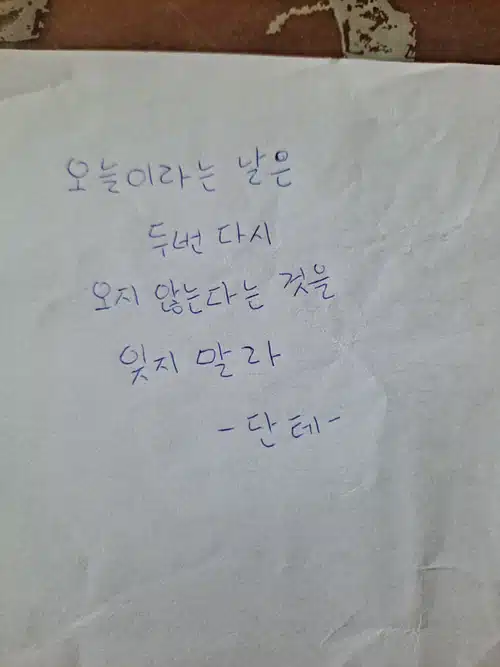 오늘이라는 날은
두번 다시
오지 않는다는 것을
잊지 말라
-단테-